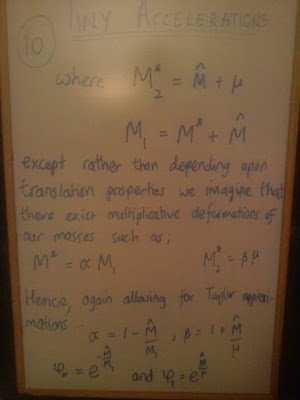 10
TINY ACCELERATIONS
where M₂* = M̂ + μ
M₁ = M* + M̂
except rather than depending upon
translation properties we imagine that
there exist multiplicative deformations of
our masses such as;
M* = α M₁ M₂* = β μ
Hence, again allowing for Taylor approxi-
mations...
α = 1 - M̂/M₁ , β = 1 + M̂/μ
φ₀ = e^(-M̂/M₁) and φ₁ = e^(M̂/μ)